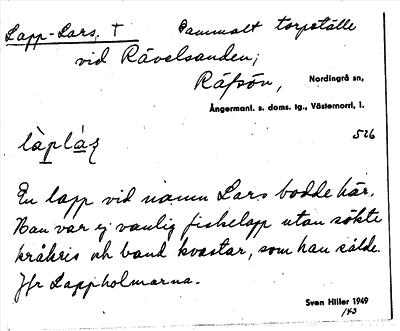 Lapp-Lars, T Gammalt torpställe
vid Rävelsanden;
Räfsön, Nordingrå sn,
Ångermanl. s. doms. tg., Västernorrl, l.
526
En lapp vid namn Lars bodde här.
Han var ej vanlig fiskelapp utan sökte
kråkris och band kvastar, som han sålde.
Jfr Lappholmarna.
Sven Hiller 1949
143